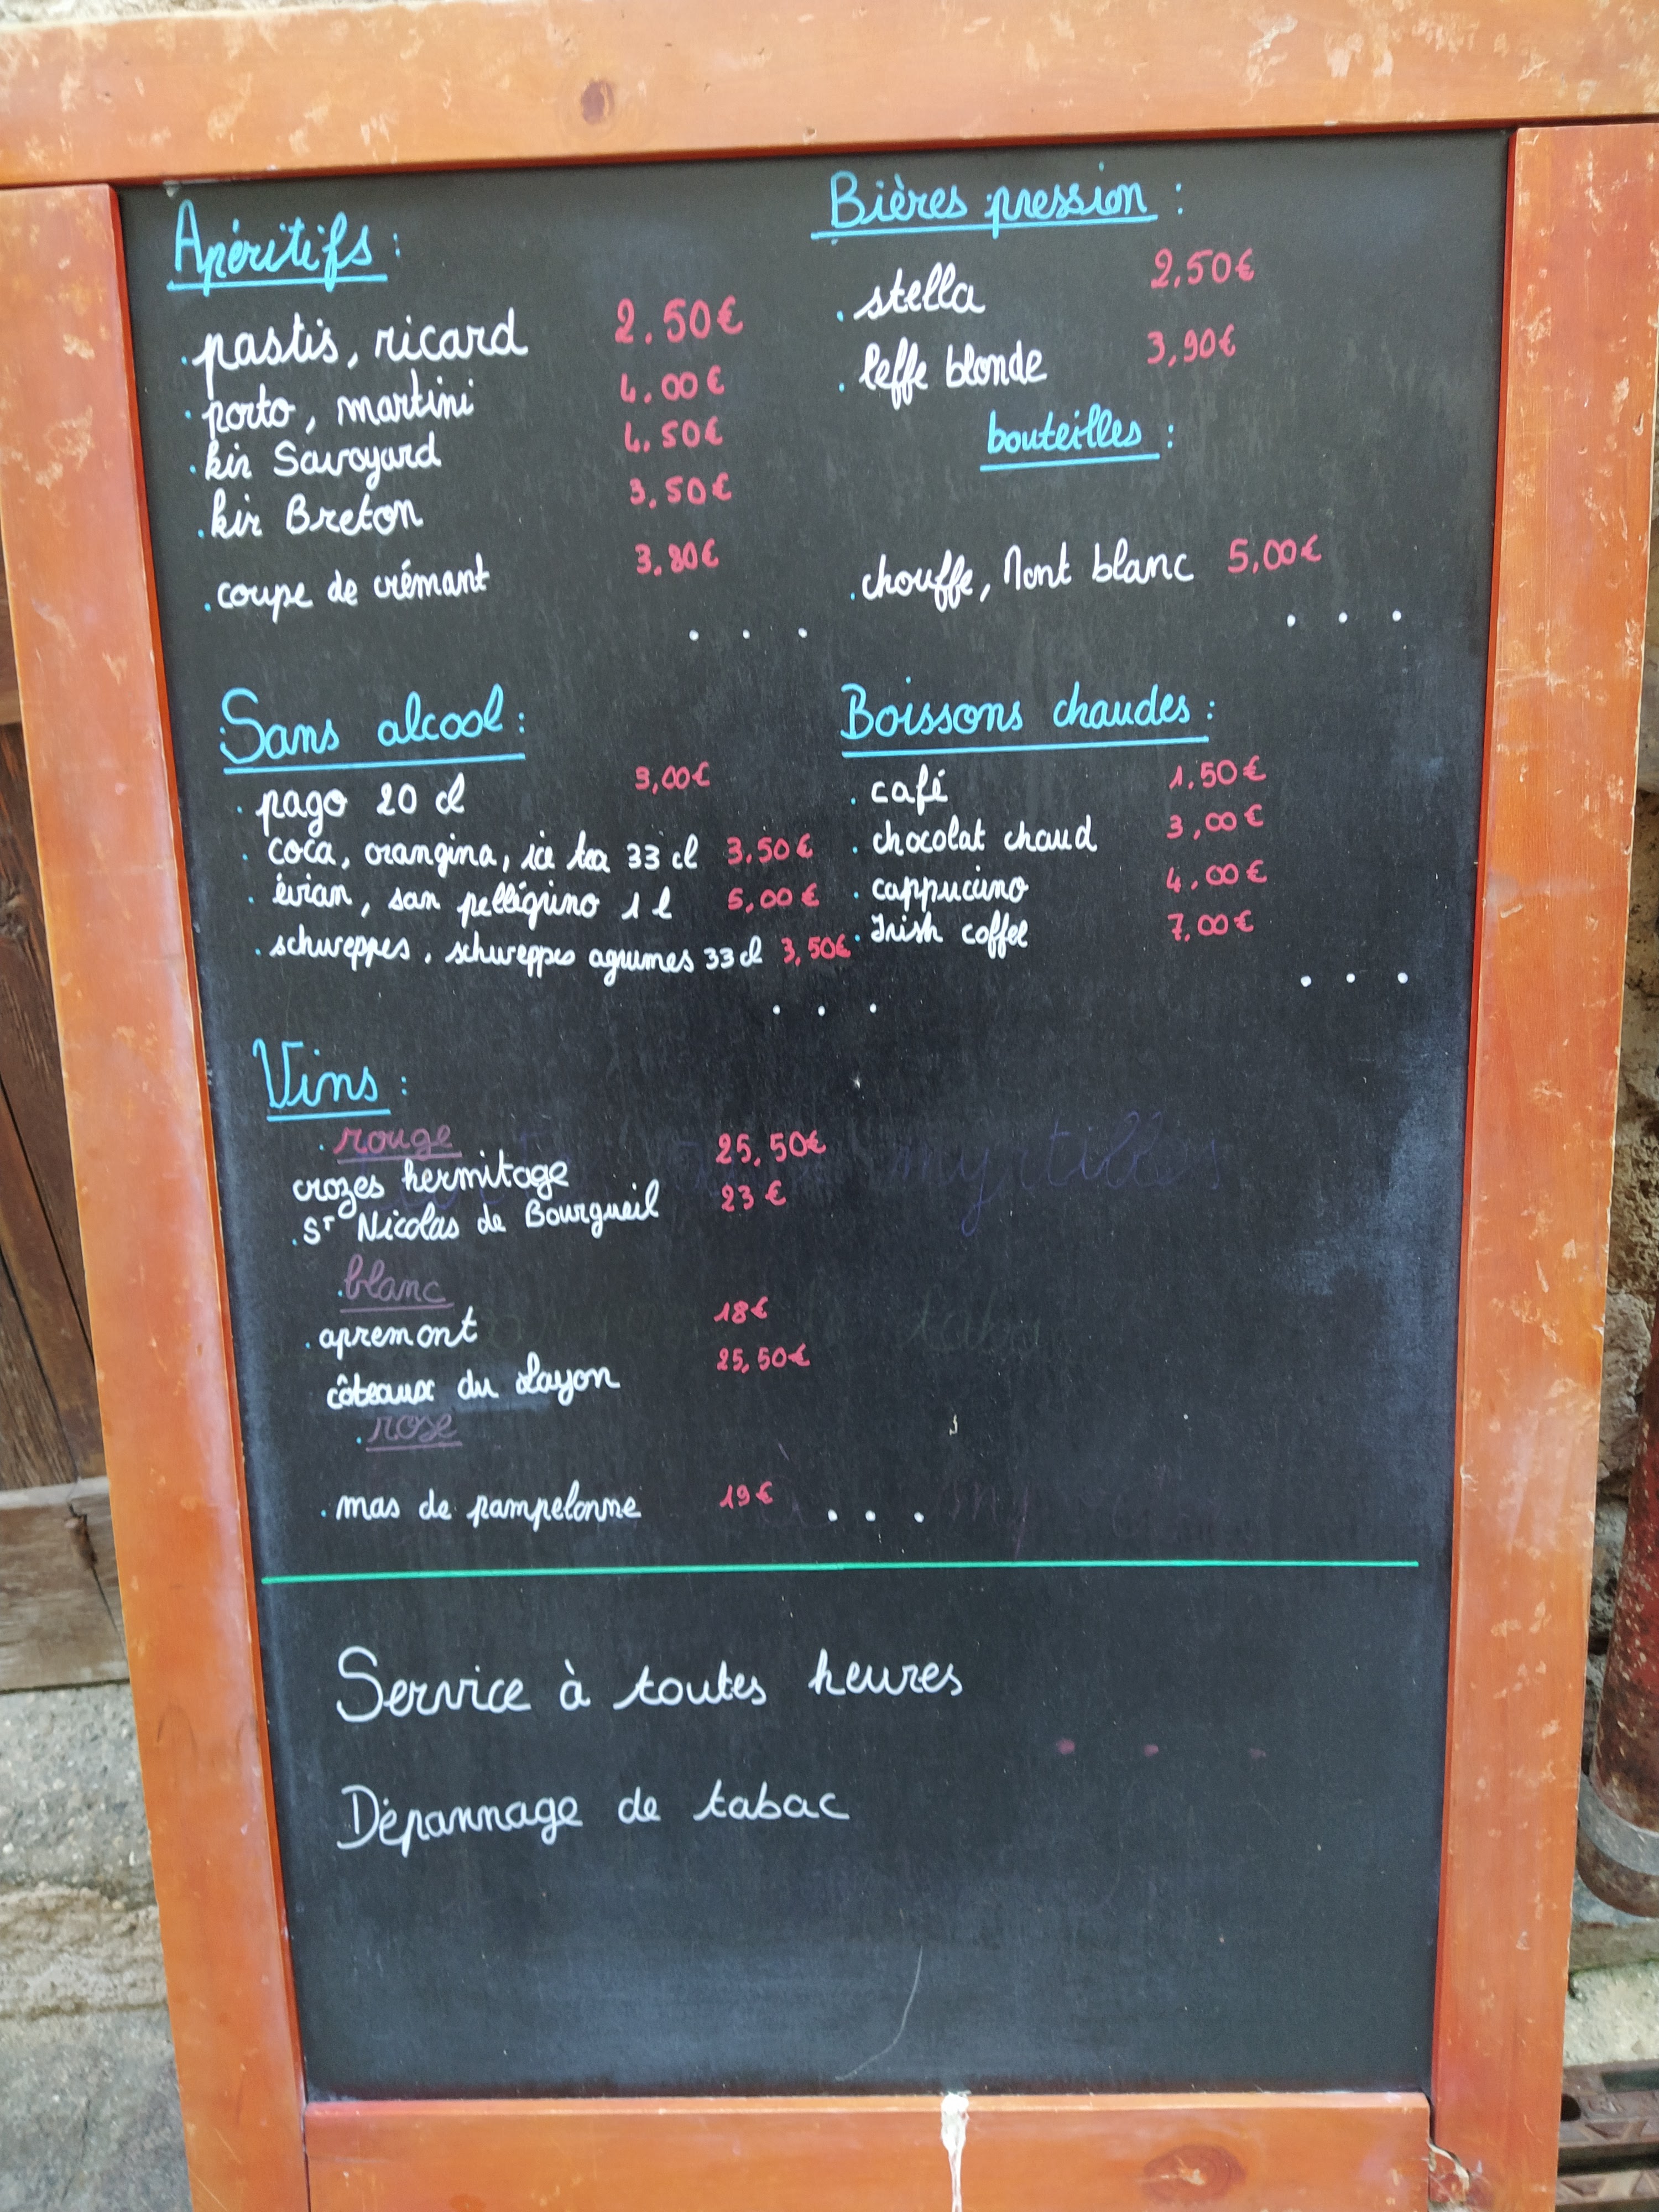 Apéritifs :
. pastis, ricard 2.50€
. porto, martini 4.00€
. kir Savoyard 4.50€
. kir Breton 3.50€
. coupe de crémant 3.80€
. . .
Bières pression :
. stella 2,50€
. leffe blonde 3,90€
bouteilles :
. chouffe, Mont blanc 5,00€
. . .
Sans alcool :
. pago 20 cl 3,00€
. coca, orangina, ice tea 33 cl 3.50€
. évian, san pellégrino 1 l 5,00€
. schweppes, schweppes agrumes 33 cl 3,50€
. . .
Boissons chaudes :
. café 1.50€
. chocolat chaud 3,00€
. cappucino 4,00€
. Irish coffee 7,00€
. . .
Vins :
. rouge
crozes hermitage 25,50€
. St Nicolas de Bourgueil 23€
. blanc
. apremont 18€
côteaux du Layon 25,50€
. rose
. mas de pampelonne 19€ . . .
Service à toutes heures
Dépannage de tabac